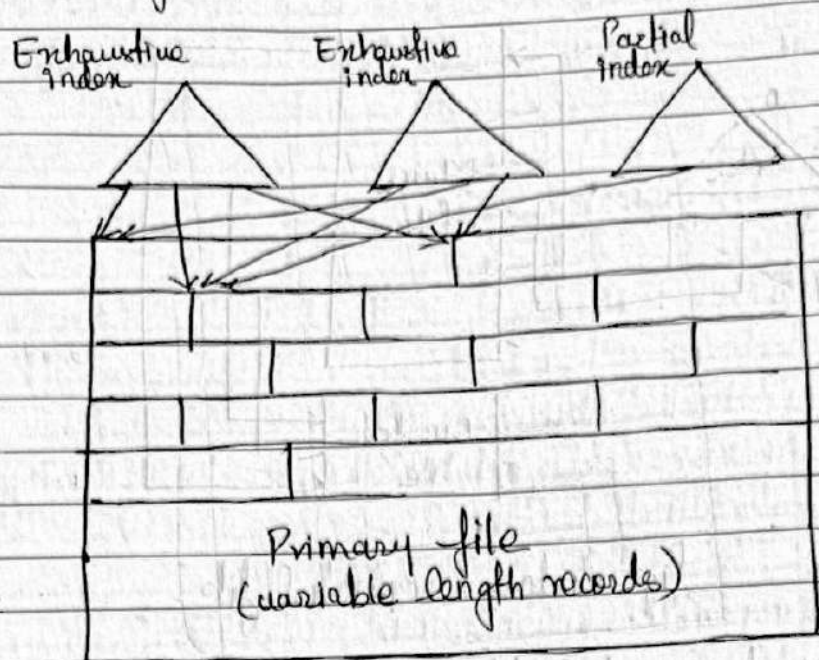 Exhaustive
index
Exhaustive
index
Partial
index
Primary file
(variable length records)